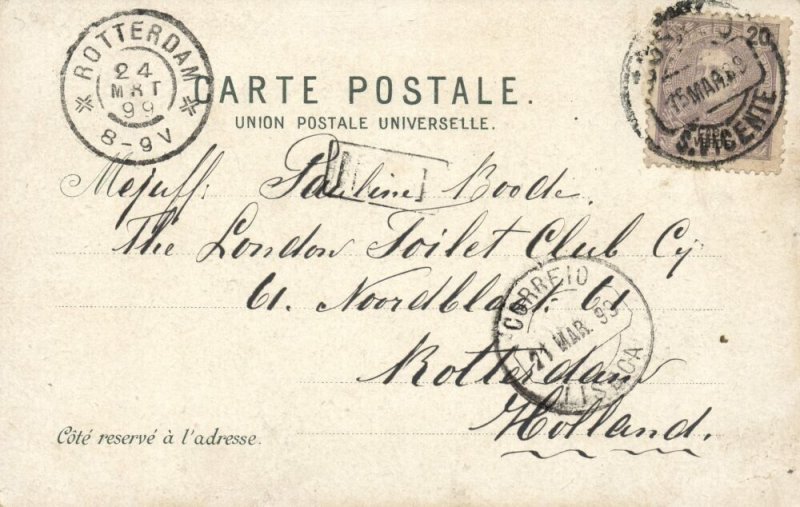 ROTTERDAM
24
MRT
99
8-9V
CARTE POSTALE.
UNION POSTALE UNIVERSELLE.
20
CORREIO
15 MAR. 99
S. VICENTE
Mejuff. Pauline Roode.
The London Toilet Club Cy
61. Noordblaak 61
Rotterdam
Holland.
CORREIO
21 MAR. 99
LISBOA
Côté reservé à l'adresse.